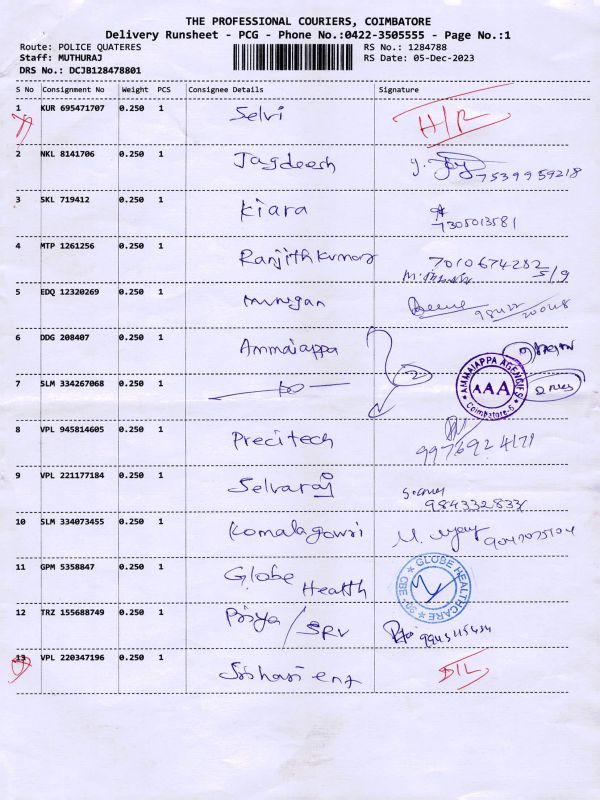 THE PROFESSIONAL COURIERS, COIMBATORE
Delivery Runsheet - PCG - Phone No.:0422-3505555 - Page No.:1
Route: POLICE QUATERES RS No.: 1284788
Staff: MUTHURAJ RS Date: 05-Dec-2023
DRS No.: DCJB128478801
S No Consignment No Weight PCS Consignee Details Signature
1 KUR 695471707 0.250 1 Selvi
2 NKL 8141706 0.250 1 Jagdeesh 7539959218
3 SKL 719412 0.250 1 Kiara 7305013581
4 MTP 1261256 0.250 1 Ranjithkumar 7010674282
5 EDQ 12320269 0.250 1 murugan
6 DDG 208407 0.250 1 Ammaiappa
AMMAIAPPA AGENCIES AAA Coimbatore-5
7 SLM 334267068 0.250 1 2
8 VPL 945814605 0.250 1 Precitech 9976924171
9 VPL 221177184 0.250 1 Selvaraj 9843328331
10 SLM 334073455 0.250 1 Komalagowri
11 GPM 5358847 0.250 1 Globe Health
GLOBE HEALTHCARE CBE
12 TRZ 155688749 0.250 1 Priya / SRV 9943115434
13 VPL 220347196 0.250 1 Srihari D/L